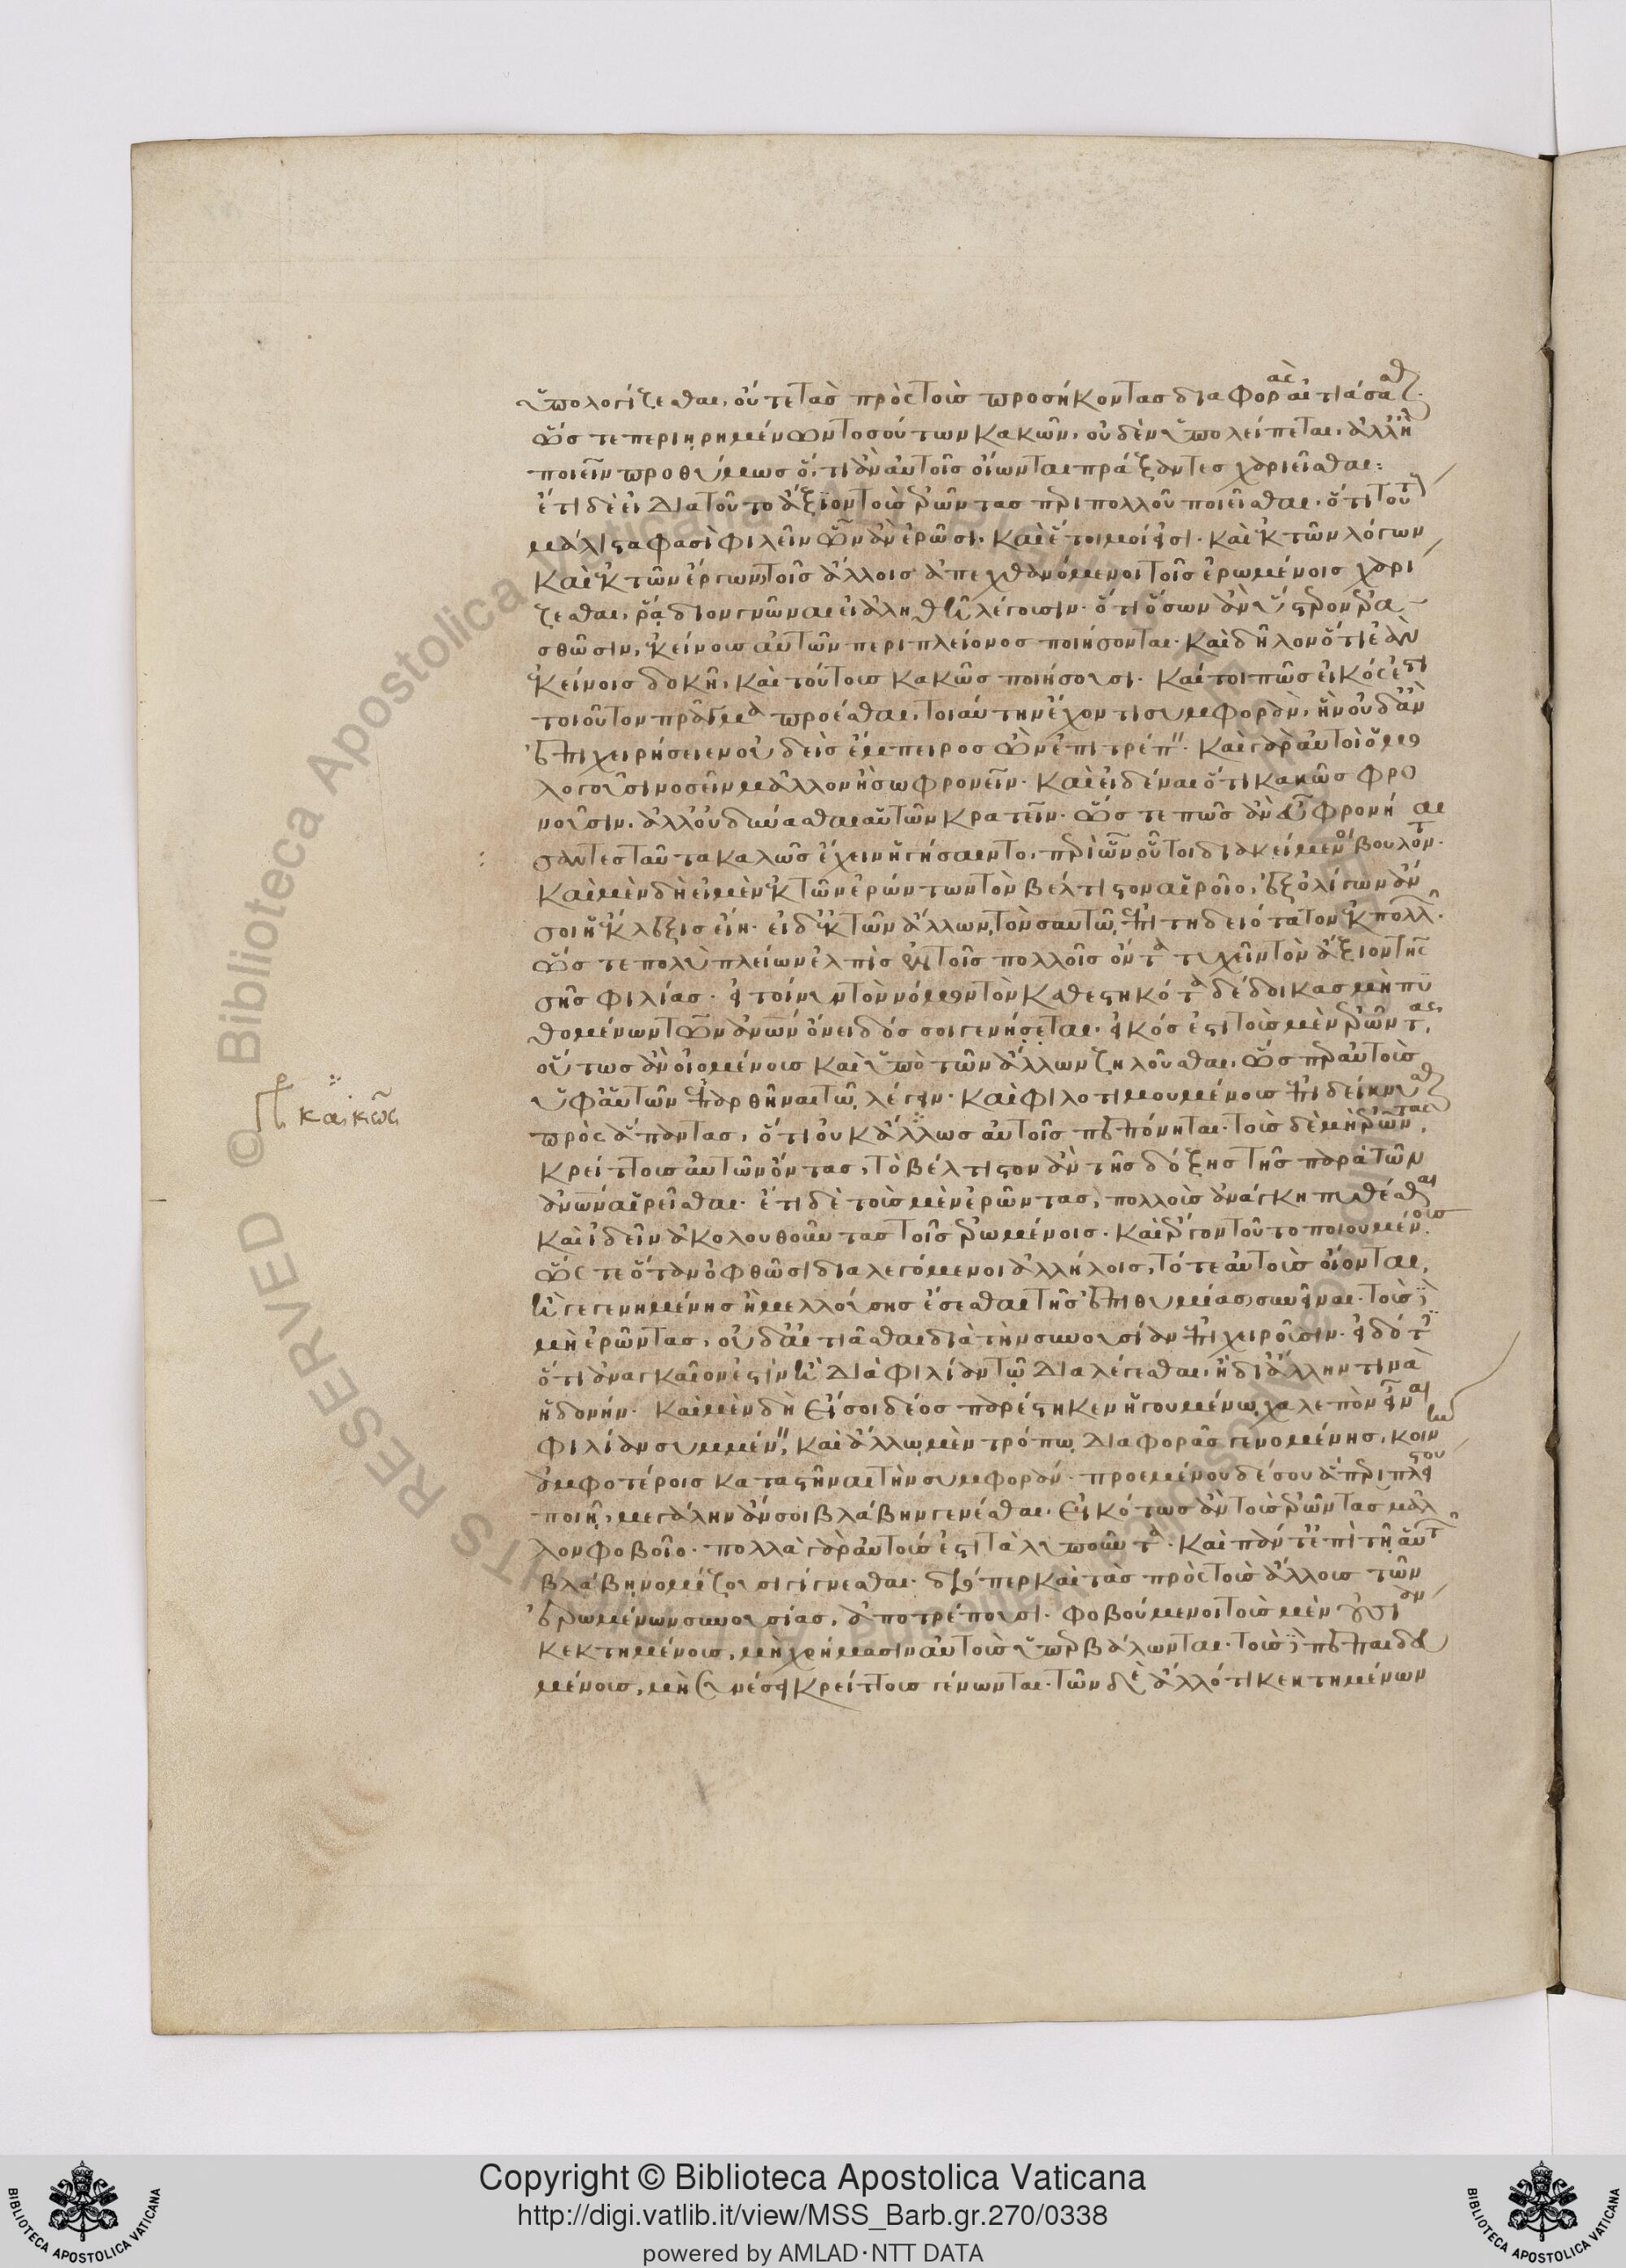 ὑπολογίζεσθαι, οὔτε τὰς πρὸς τοὺς προσήκοντας διαφορὰς αἰτιάσασθαι.
ὥστε περιῃρημένων τοσούτων κακῶν, οὐδὲν ὑπολείπεται, ἀλλ' ἢ
ποιεῖν προθύμως ὅ,τι ἂν αὐτοῖς οἴωνται πράξαντες χαριεῖσθαι:
ἔτι δὲ εἰ διὰ τοῦτο ἄξιον τοὺς ἐρῶντας περὶ πολλοῦ ποιεῖσθαι, ὅτι τούτους
μάλιστα φασὶ φιλεῖν ὧν ἂν ἐρῶσι, καὶ ἕτοιμοί εἰσι καὶ ἐκ τῶν λόγων
καὶ ἐκ τῶν ἔργων τοῖς ἄλλοις ἀπεχθανόμενοι τοῖς ἐρωμένοις χαρί
ζεσθαι, ῥᾴδιον γνῶναι εἰ ἀληθῆ λέγουσιν. ὅτι ὅσων ἂν ὕστερον ἐρα
σθῶσιν, ἐκείνους αὐτῶν περὶ πλείονος ποιήσονται. καὶ δῆλον ὅτι ἐὰν
ἐκείνοις δοκῇ, καὶ τούτους κακῶς ποιήσουσι. καί τοι πῶς εἰκός ἐστι
τοιοῦτον πρᾶγμα προέσθαι, τοιαύτην ἔχοντι συμφοράν, ἣν οὐδ' ἂν
ἐπιχειρήσειεν οὐδεὶς ἔμπειρος ὢν ἐπιτρέπειν. καὶ γὰρ αὐτοὶ ὁμο
λογοῦσι νοσεῖν μᾶλλον ἢ σωφρονεῖν. καὶ εἰδέναι ὅτι κακῶς φρο
νοῦσιν, ἀλλ' οὐ δύνασθαι αὑτῶν κρατεῖν. ὥστε πῶς ἂν εὖ φρονή
σαντες ταῦτα καλῶς ἔχειν ἡγήσαιντο, περὶ ὧν οὗτοι διακείμενοι βουλόνται.
καὶ μὲν δὴ εἰ μὲν ἐκ τῶν ἐρώντων τὸν βέλτιστον αἱροῖο, ἐξ ὀλίγων ἄν
σοι ἡ ἔκλεξις εἴη. εἰ δ' ἐκ τῶν ἄλλων, τὸν σαυτῷ ἐπιτηδειότατον, ἐκ πολλῶν.
ὥστε πολὺ πλείων ἐλπὶς ἐν τοῖς πολλοῖς ὄντα τυχεῖν τὸν ἄξιον τῆς
σῆς φιλίας. εἰ τοίνυν τὸν νόμον τὸν καθεστηκότα δέδοικας μὴ πυ
θομένων τῶν ἀνων ὄνειδός σοι γενήσεται. εἰκός ἐστι τοὺς μὲν ἐρῶντας,
οὕτως ἂν οἰομένους καὶ ὑπὸ τῶν ἄλλων ζηλοῦσθαι, ὥσπερ αὐτοὺς
ὑφ' αὑτῶν ἐπαρθῆναι τῷ λέγειν. καὶ φιλοτιμουμένους ἐπιδείκνυσθαι
πρὸς ἅπαντας, ὅτι οὐκ ἄλλως αὐτοῖς πεπόνηται. τοὺς δὲ μὴ ἐρῶντας,
κρείττους αὑτῶν ὄντας, τὸ βέλτιστον ἀντὶ τῆς δόξης τῆς παρὰ τῶν
ἀνων αἱρεῖσθαι. ἔτι δὲ τοὺς μὲν ἐρῶντας, πολλοὺς ἀνάγκη πυθέσθαι
καὶ ἰδεῖν ἀκολουθοῦντας τοῖς ἐρωμένοις. καὶ ἔργον τοῦτο ποιουμένους.
ὥστε ὅταν ὀφθῶσι διαλεγόμενοι ἀλλήλοις, τότε αὐτοὺς οἴονται,
ἢ γεγενημένης ἢ μελλούσης ἔσεσθαι τῆς ἐπιθυμίας συνεῖναι. τοὺς δὲ
μὴ ἐρῶντας, οὐδ' αἰτιᾶσθαι διὰ τὴν συνουσίαν ἐπιχειροῦσιν. εἰδότες
ὅτι ἀναγκαῖον ἐστὶν ἢ διὰ φιλίαν τῳ διαλέγεσθαι, ἢ δι' ἄλλην τινὰ
ἡδονήν. καὶ μὲν δὴ εἴ σοι δέος παρέστηκεν ἡγουμένῳ χαλεπὸν εἶναι
φιλίαν συμμένειν, καὶ ἄλλῳ μὲν τρόπῳ διαφορᾶς γενομένης, κοινὴν
ἀμφοτέροις καταστῆναι τὴν συμφοράν. προεμένου δέ σου ἃ περὶ πλείστου
ποιῇ, μεγάλην ἄν σοι βλάβην γενέσθαι. εἰκότως ἂν τοὺς ἐρῶντας μᾶλ
λον φοβοῖο. πολλὰ γὰρ αὐτούς ἐστι τὰ λυποῦντα. καὶ πάντ' ἐπὶ τῇ αὑτῶν
βλάβῃ νομίζουσι γίγνεσθαι. διόπερ καὶ τὰς πρὸς τοὺς ἄλλους τῶν
ἐρωμένων συνουσίας, ἀποτρέπουσι. φοβούμενοι τοὺς μὲν οὐσίαν
κεκτημένους, μὴ χρήμασιν αὐτοὺς ὑπερβάλωνται. τοὺς δὲ πεπαιδευ
μένους, μὴ συνέσει κρείττους γένωνται. τῶν δὲ ἄλλό τι κεκτημένων
καὶ κακῶς